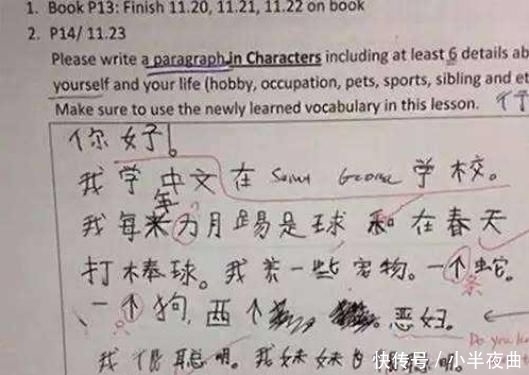 1. Book P13: Finish 11.20, 11.21, 11.22 on book
2. P14/ 11.23
Please write a paragraph in Characters including at least 6 details ab
yourself and your life (hobby, occupation, pets, sports, sibling and et
Make sure to use the newly learned vocabulary in this lesson.
你好!
我学中文在 George 学校。
年
我每来为月踢是球和在春天
打棒球。我养一些宠物。一个蛇。
条
一个狗,西个 恶妞。
Do you
我很聪明。我妹妹 聪明。
快传号/小半夜曲